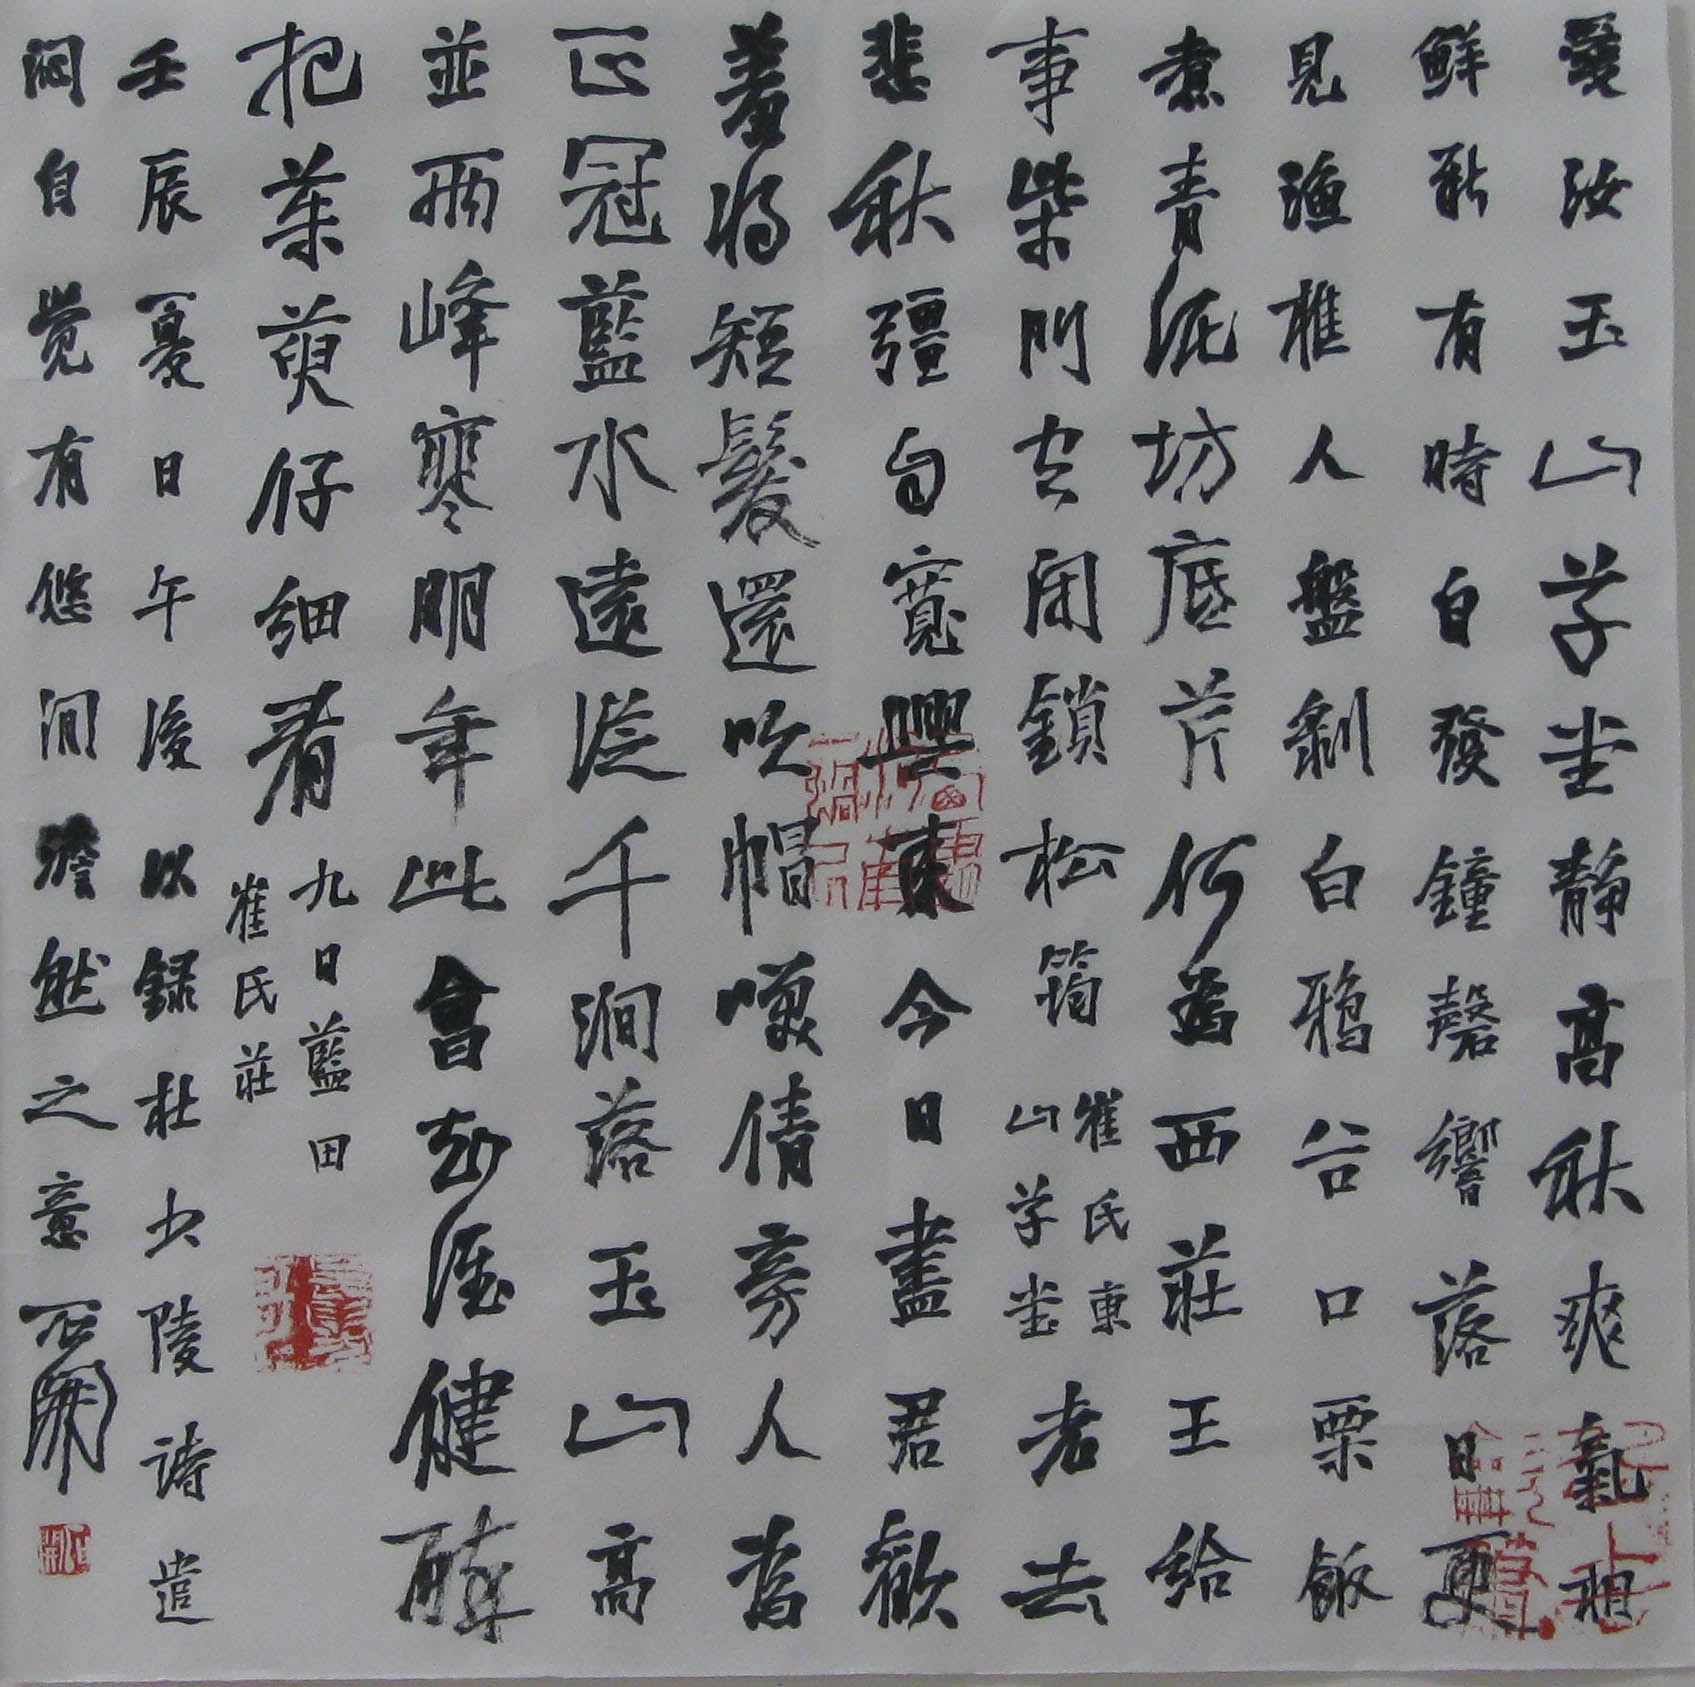 愛汝玉山草堂靜高秋爽氣相
鮮新有時自發鐘磬響落日更
見漁樵人盤剝白鴉谷口栗飯
煮青泥坊底芹何為西莊王給
事柴門空閉鎖松筠
崔氏東
山草堂
老去
悲秋彊自寬興來今日盡君歡
羞將短髮還吹帽咲倩旁人為
正冠藍水遠從千澗落玉山高
並兩峰寒明年此會知誰健醉
把茱萸仔細看
九日藍田
崔氏莊
壬辰夏日午後以録杜少陵詩遣
悶自覺有悠閒澹然之意石開